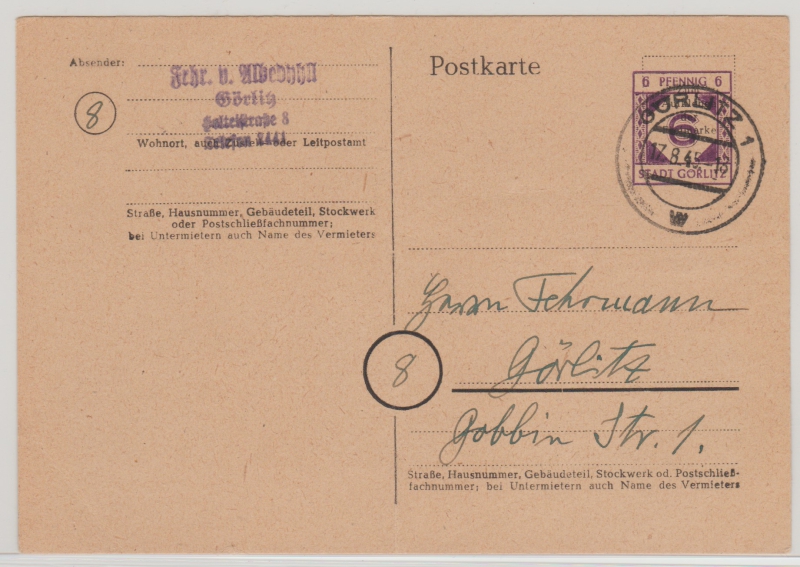 Absender:
Frhr. v.
Görlitz
8
Wohnort, auch oder Leitpostamt
8
Straße, Hausnummer, Gebäudeteil, Stockwerk
oder Postschließfachnummer;
bei Untermietern auch Name des Vermieters
Postkarte
6 PFENNIG 6
STADT GÖRLITZ
GÖRLITZ 1
17.8.45
Herrn Fehrmann
8
Görlitz
Gobbin Str. 1.
Straße, Hausnummer, Gebäudeteil, Stockwerk od. Postschließ-
fachnummer; bei Untermietern auch Name des Vermieters